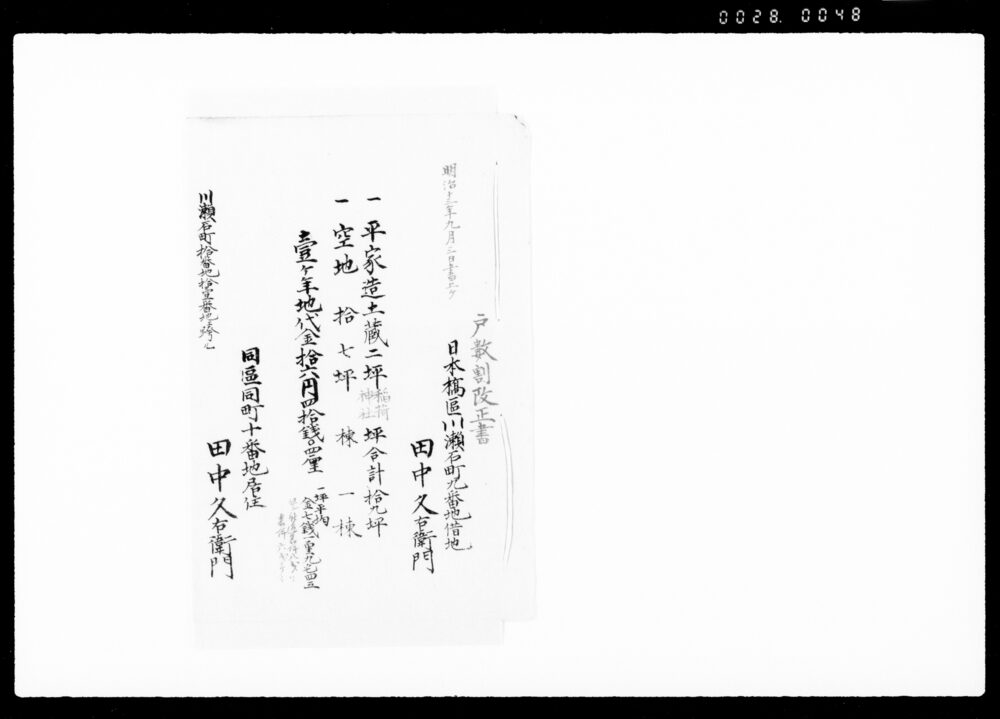 0028. 0048
戸数割改正書
明治十三年九月三日書上ケ
日本橋區川瀬石町九番地借地
田中久右衛門
一平家造土蔵二坪 稲荷神社 坪合計拾九坪
一空地 拾七坪 棟 一棟
壹ケ年地代金拾六円四拾銭〇四厘
一坪平均
金七銭一厘九毛四五
同區同町十番地居住
田中久右衛門
川瀬石町拾番地拾壹番地跨ル